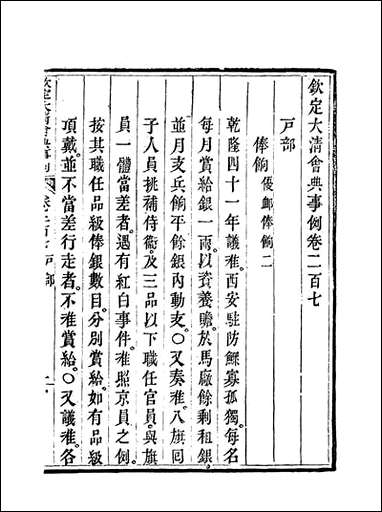 欽定大清會典事例卷二百七
戸部
俸餉優卹俸餉二
乾隆四十一年議准。西安駐防鰥寡孤獨。每名
每月賞給銀一兩。以資養贍。於馬廠餘剩租銀。
並月支兵餉平餘銀內動支。〇又奏准。八旗囘
子人員挑補侍衞。及三品以下職任官員。與旗
員一體當差者。遇有紅白事件。准照京員之例。
按其職任品級俸銀數目。分別賞給。如有品級
項戴。並不當差行走者。不准賞給。〇又議准。各
欽定大清會典事例 卷二百七 戸部 一